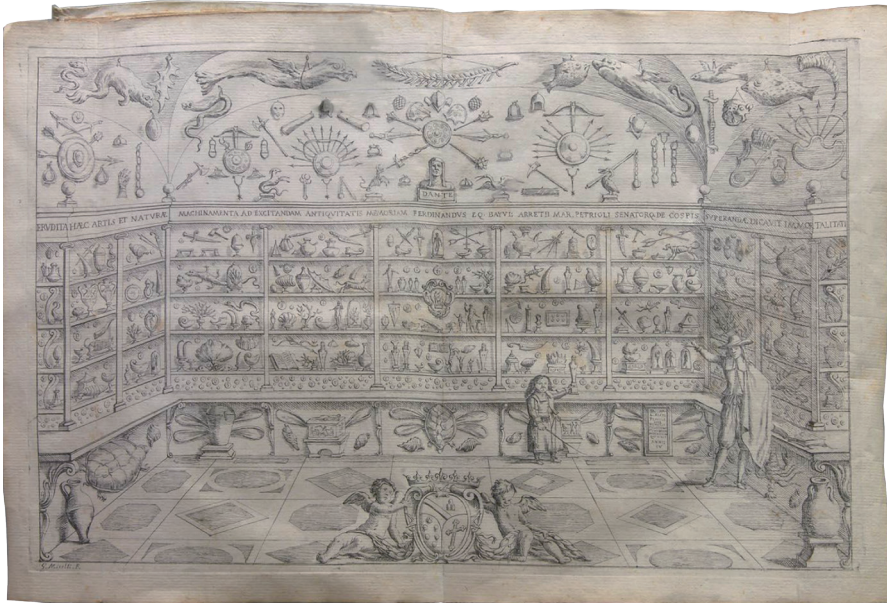 DANTE
ERVDITA HÆC ARTIS ET NATVRÆ MACHINAMENTA AD EXCITANDAM ANTIQVITATIS MEMORIAM FERDINANDVS EQ. BAIVL ARRETII MAR. PETRIOLI SENATORQ. DE COSPIS SVPERANDÆ DICAVIT IMMORTALITATI